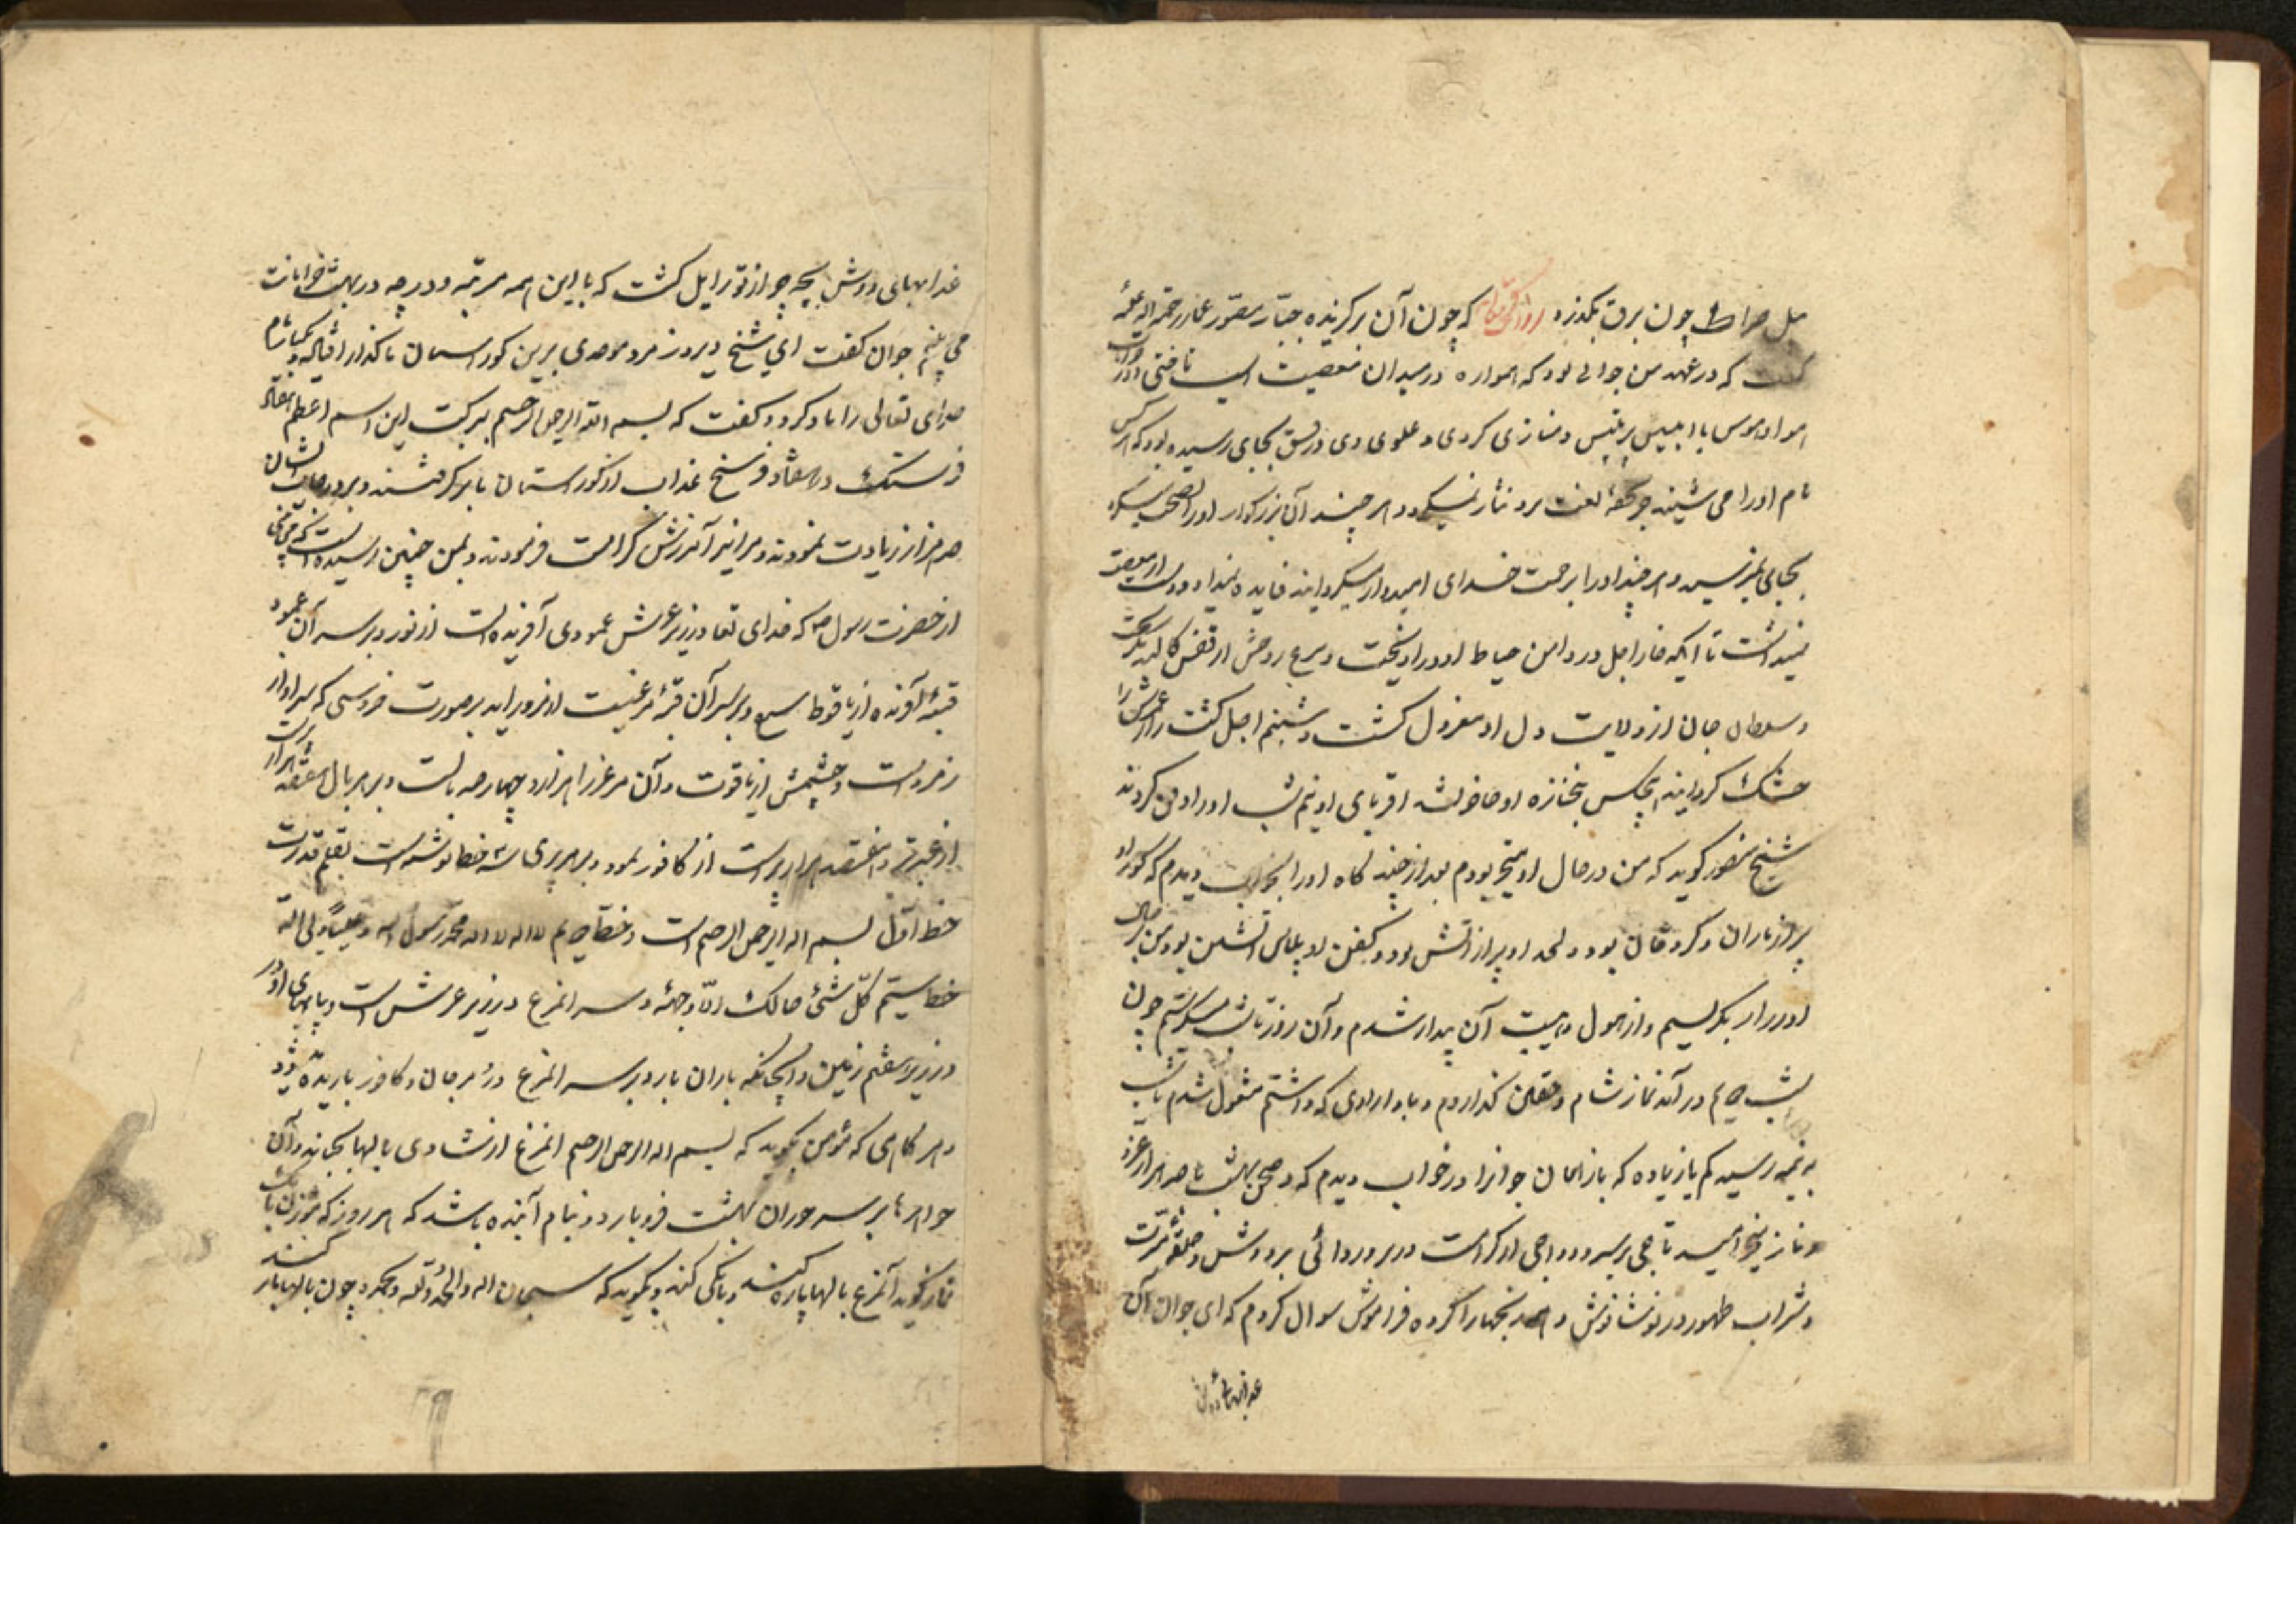 پل صراط چون برق بگذرد که چون آن برگزیده جبّار منصور عمار رحمة اله علیه
گفت که در عهد من جوانی بود که همواره در میدان معصیت اسب تاختی و در
هوا و هوس با ابلیس پرتلبیس دمسازی کردی و علوی وی در فسق بجایی رسیده بود که هر کس
نام او را می شنید جز تحفهٔ لعنت برو نثار نمیکرد و هر چند آن بزرگوار او را نصحت میکرد
بجایی نمیرسید و هر چند او را برحمت خدای امیدوار میگردانید فایده نمیداد و دست از معصیت
نمیداشت تا آنکه خار اجل در دامن حیاط او در آویخت و مرغ روحش از قفس کالبد
و سلطان جان از ولایت دل او معزول گشت و شبنم اجل کشت زار عمرش را
خشک گردانید هیچکس بجنازه او حاضر نشد اقربای او نیم شب او را دفن کردند
شیخ منصور گوید که من در حال او متحیر بودم بعد از چند گاه او را بخواب دیدم که گور او
پر از ماران و کژدمان بود و لحد او پر از آتش بود و کفن او پلاس آتشین بود من بر حال
او زار زار بگریستم و از هول و هیبت آن بیدار شدم و آن روز تا شب میگریستم چون
شب در آمد نماز شام و خفتن گذاردم و باورادی که داشتم مشغول شدم تا شب
به نیمه رسید کم یا زیاده که باز همان جوانرا در خواب دیدم که در صحن بهشت با صد هزار عز
و ناز میخرامید تاجی بر سر و دواجی از کرامت در بر و ردائی بر دوش و حلقه
و شراب طهور در نوشانوش و همه رنجها را کرده فراموش سوال کردم که ای جوان آن
عذابهای دوش
عذابهای دوش بچه چیز از تو زایل گشت که با این همه مرتبه و درجه در بهشت خرامانت
می بینم جوان گفت ای شیخ دیروز مرد موحدی برین گورستان ما گذار افتاد و یکبار نام
خدای تعالی را یاد کرد و گفت که بسم الله الرحمن الرحیم ببرکت این اسم اعظم هفتاد
فرسنگ در هفتاد فرسنگ عذاب از گورستان ما برگرفتند و بر درجات ایشان
هزار زیادت نمودند و مرا نیز آمرزش کرامت فرمودند و بمن چنین رسیده است
از حضرت رسول ص که خدای تعا در زیر عرش عمودی آفریده است از نور و بر سر آن عمود
قبهٔ آفریده از یاقوط سرخ و بر سر آن قبه مرغیست بصورت خروسی که سر او از
زمرد است و چشمش از یاقوت و آن مرغ را هزار و چهارصد بالست و بر هر بال هفتصد هزار
از عنبر تر و هفتصد هزار پر است از کافور و بر هر پری سه خط نوشته است بقلم قدرت
خط اول بسم اله الرحمن الرحیم است و خط دویم لا اله الا اله محمد رسول اله و علیاً ولی الله
خط سیم کلّ شئ هالک الّا وجهه و سر آن مرغ در زیر عرش است و پایهای او در
در زیر هفتم زمین و آنجانکه باران بارد بر سر آن مرغ درّ و مرجان و کافور باریده شود
و هر گاهی که مؤمن بگوید که بسم اله الرحمن الرحیم آن مرغ از شادی بالها بجنباند و آن
جواهرها بر سر حوران بهشت فرو بارد و بنام آینده باشد که هر روز که مؤذن بانک
نماز گوید آنمرغ بالها باز کند و بانکی کند و بگوید که سبحان اله والحمد لله و چون بالها باز
کند